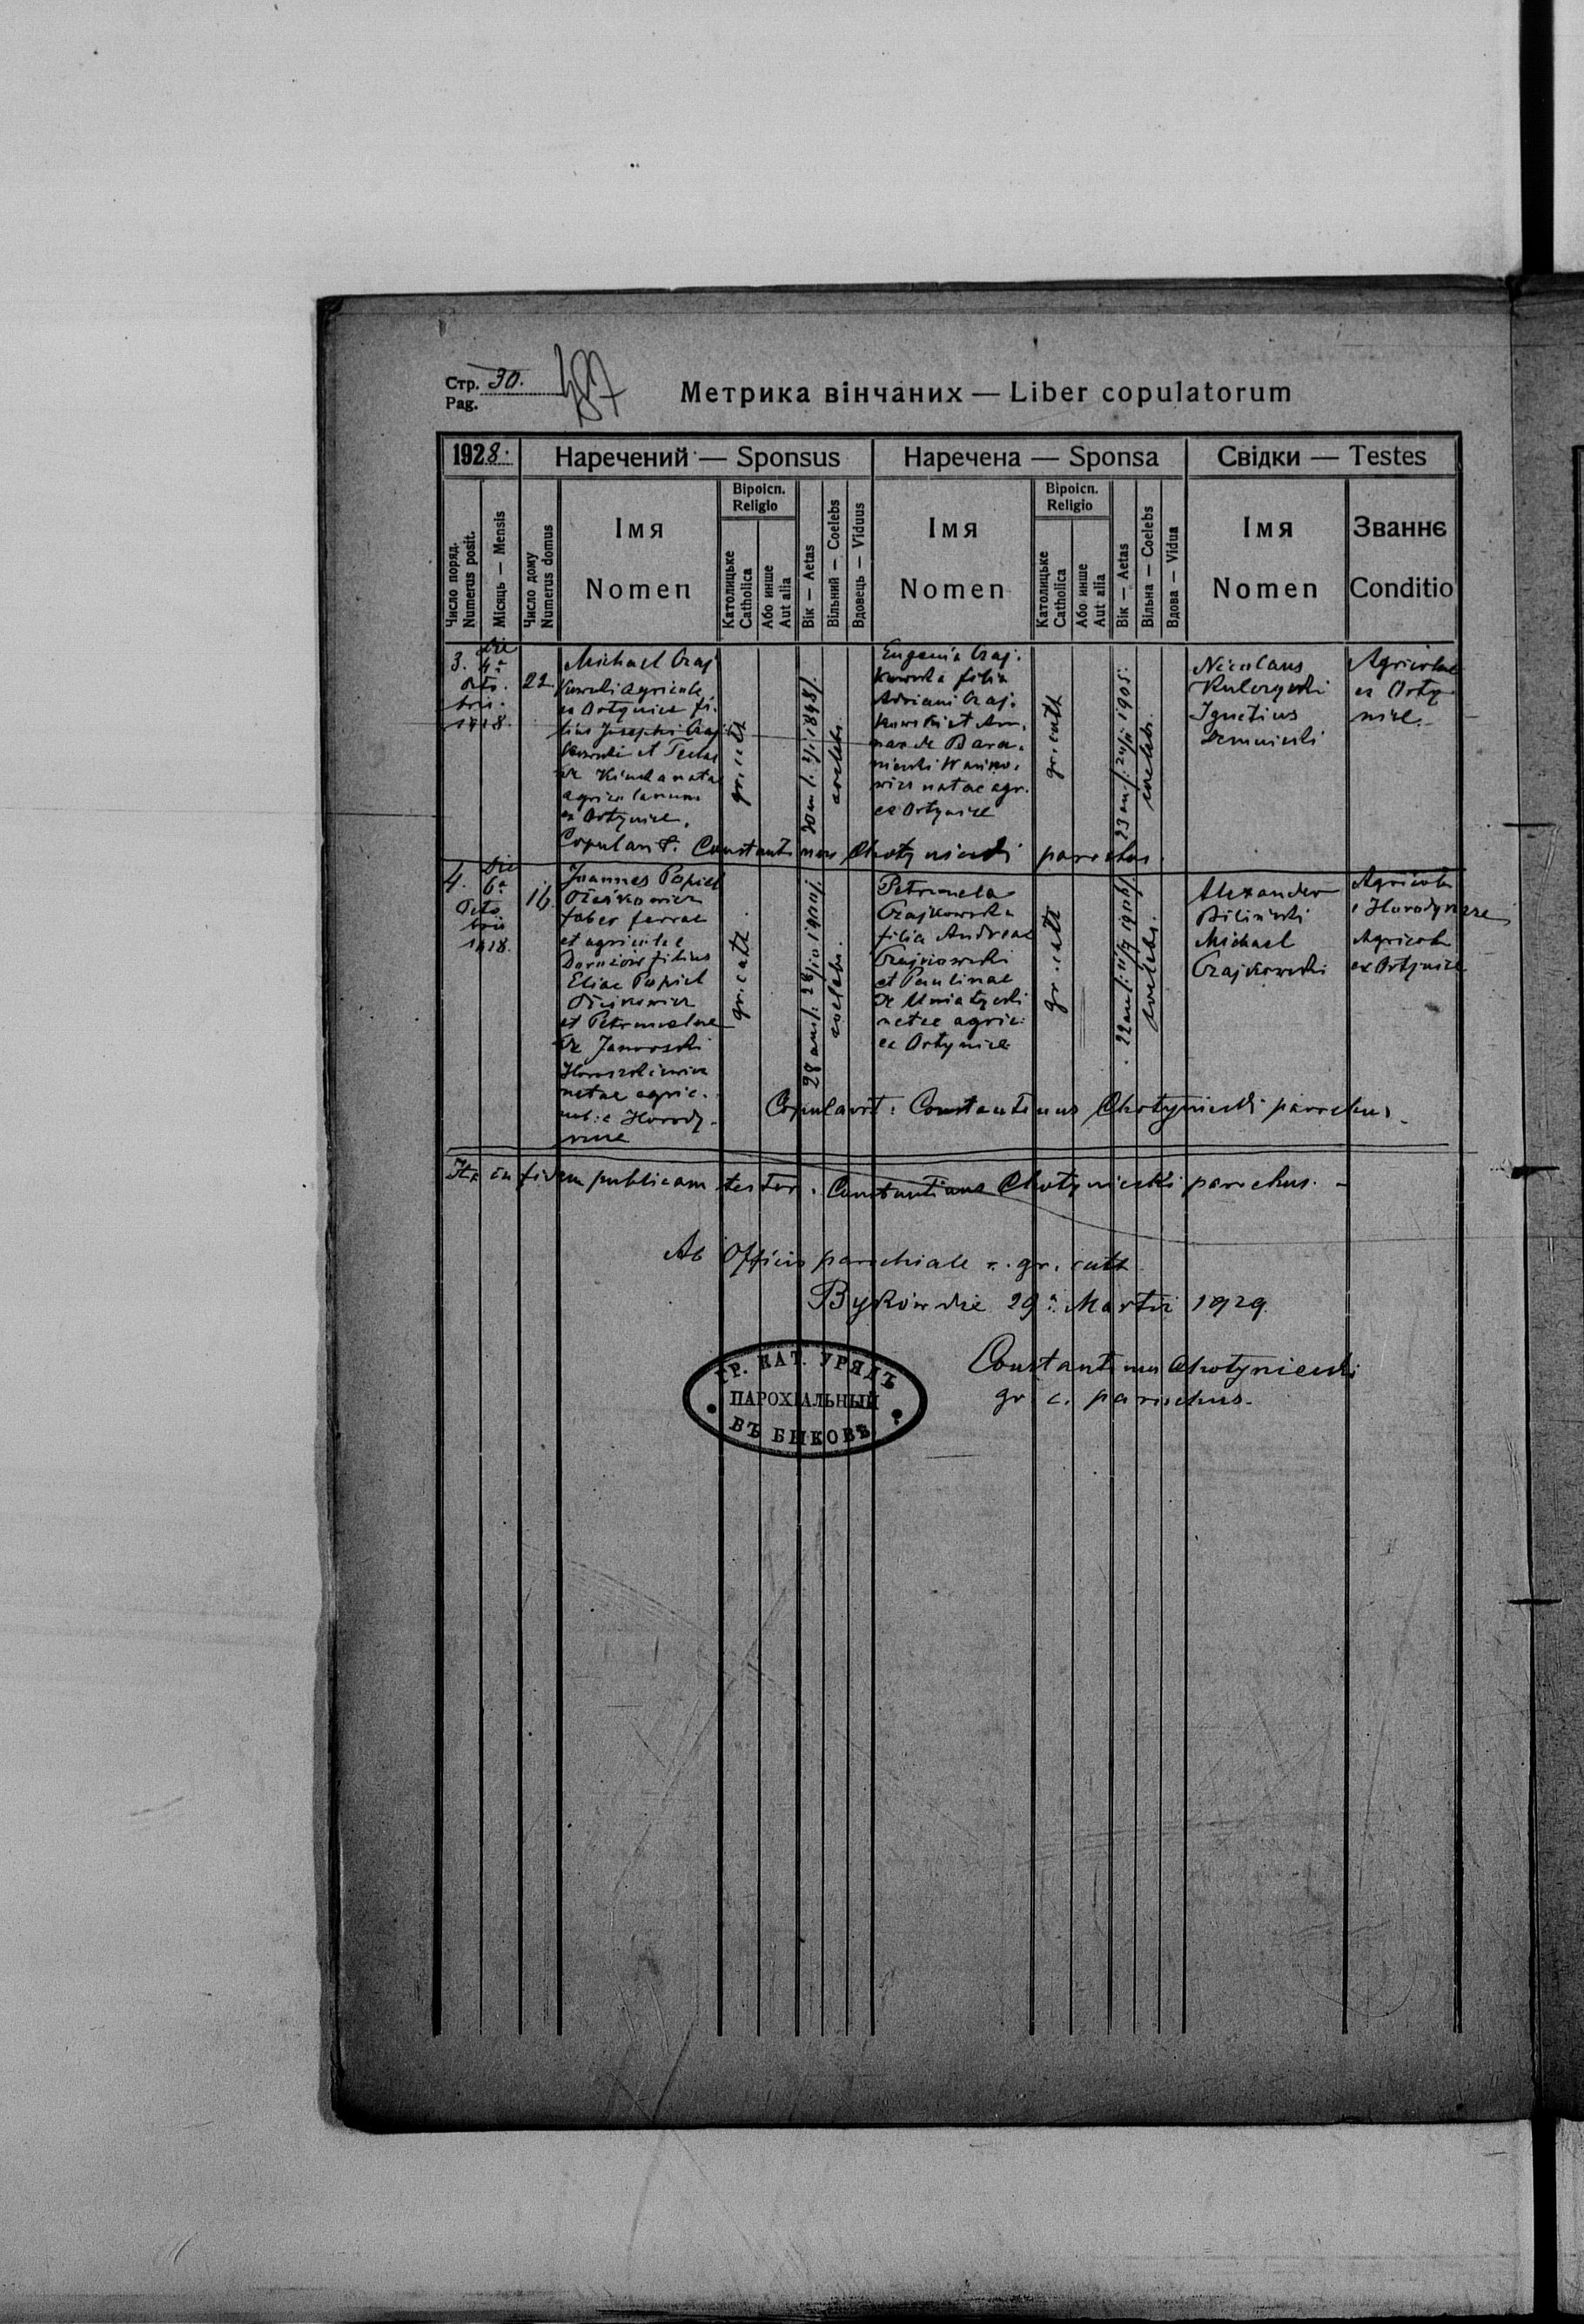 Стр. 30.
Pag.
387
Метрика вінчаних — Liber copulatorum
1928.
Наречений — Sponsus
Наречена — Sponsa
Свідки — Testes
Число поряд.
Numerus posit.
Місяць — Mensis
Число дому
Numerus domus
Імя
Nomen
Віроісп.
Religio
Католицьке
Catholica
Або инше
Aut alia
Вік — Aetas
Вільний — Coelebs
Вдовець — Viduus
Імя
Nomen
Віроісп.
Religio
Католицьке
Catholica
Або инше
Aut alia
Вік — Aetas
Вільна — Coelebs
Вдова — Vidua
Імя
Nomen
Званнє
Conditio
3. Die
4ª
Octo.
bris.
1928.
22.
Michael Czaj
kowski agricola
ex Ortynice fi.
lius Josephi Czaj
kowski et Teclae
de
natae
agricolarum
ex Ortynice.
gr. cath
30 an
coelebs.
Eugenia Czaj.
kowska filia
Adriani Czaj.
kowski et An.
nae de Bara.
niecki
wicz natae agr.
ex Ortynice
gr. cath
23 an 1905.
coelebs.
Nicolaus
Kulczycki
Ignatius
Agricolae
ex Orty
nice.
Copulavit. Constantinus Chotyniecki parochus.
4. Die
6ª
Octo
bris
1928.
16.
Joannes Popiel
faber ferrae
et agricola e
filius
Eliae Popiel
et Petronelae
de Jaworski
natae agric.
nob. e Horody-
gr. cath.
28 an
coelebs.
Petronela
Czajkowska
filia Andreae
Czajkowski
et Paulinae
de
natae agric:
ex Ortynice
gr. cath
22 an
coelebs.
Alexander
Biliński
Michael
Czajkowski
Agricola
e Horodyszcze
Agricola
ex Ortynice
Copulavit: Constantinus Chotyniecki parochus.
Ita in fidem publicam testor. Constantinus Chotyniecki parochus. -
Ab Officio parochiale r. gr. cath
Byków die 29ª Martii 1929.
ГР. КАТ. УРЯДЪ
ПАРОХІАЛЬНЫЙ
ВЪ БЫКОВѢ
Constantinus Chotyniecki
gr. c. parochus.